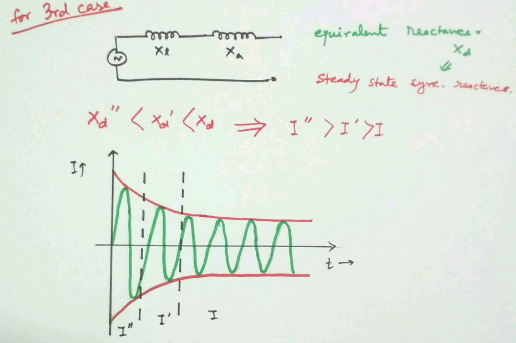 for 3rd case
equivalent reactance.
Xd
Steady state sync. reactance.
~
Xl Xa
Xd'' < Xd' < Xd ⇒ I'' > I' > I
I↑
t →
I'' I' I